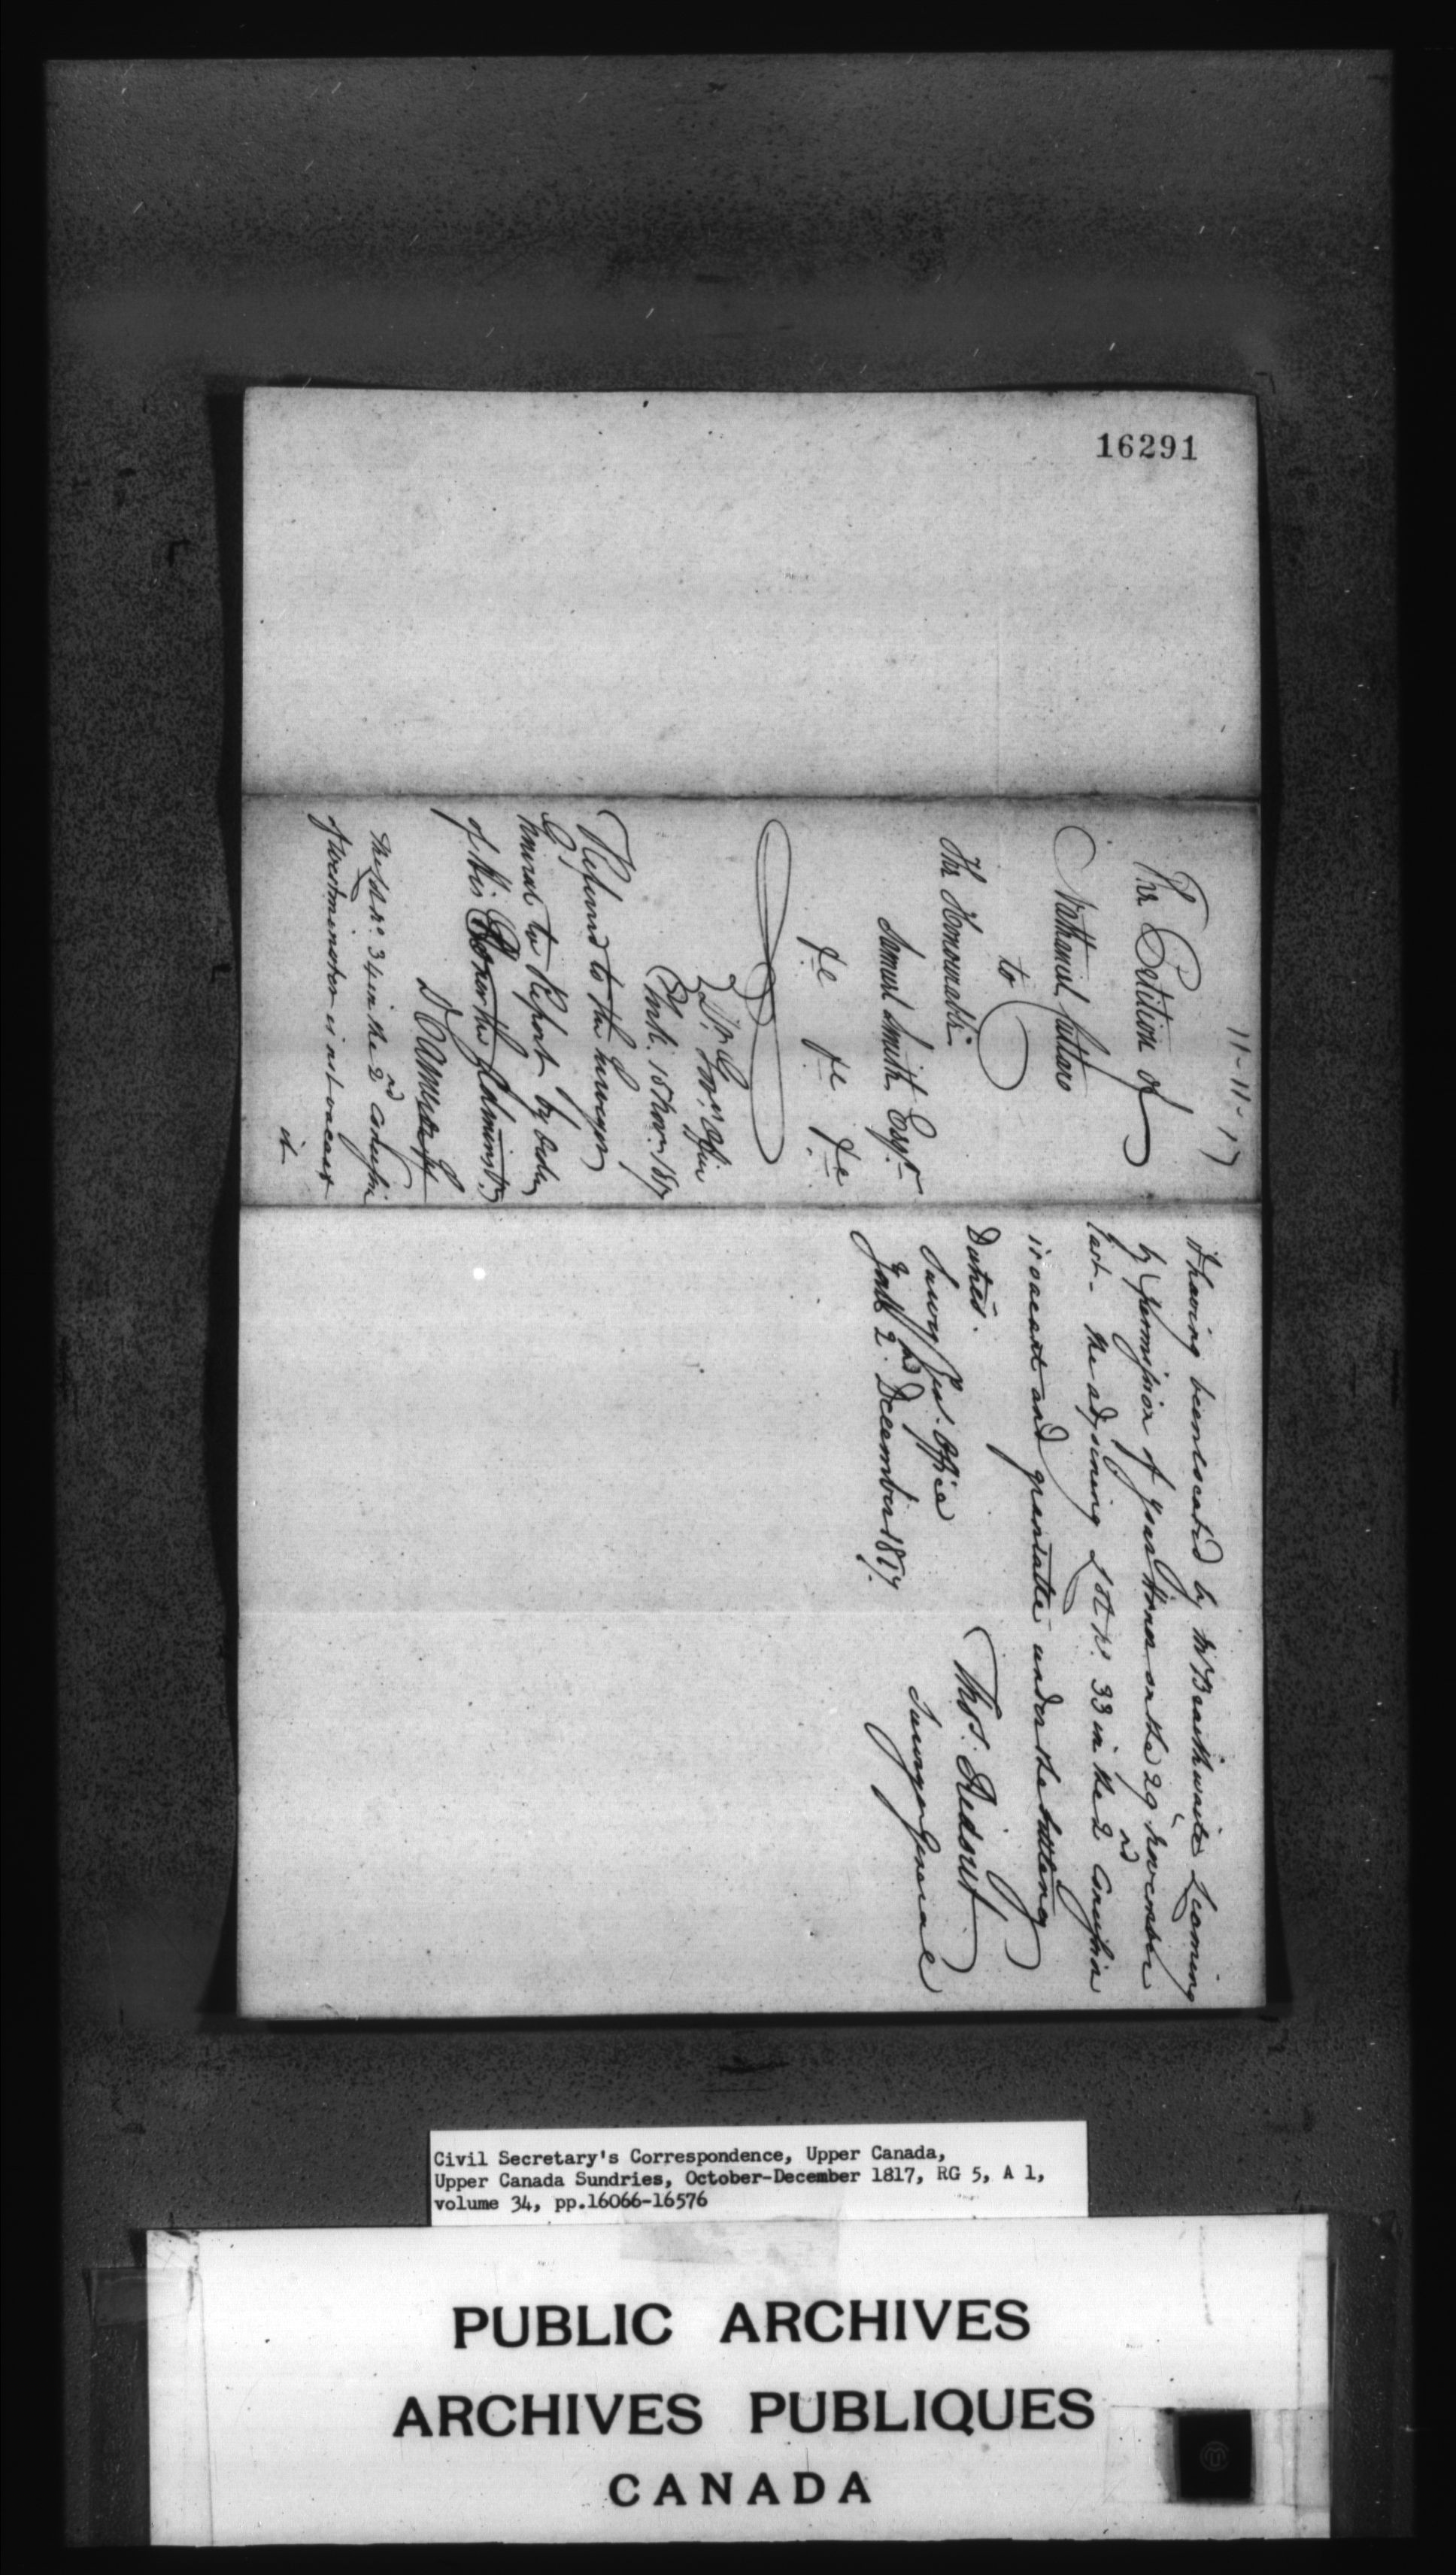 16291
11-11-17
The Petition of
Nathaniel
to
The Honourable
Samuel Smith Esqr
&c &c &c
Lt. Govrs Office
York. 18 Novr. 1817
Referred to the Surveyor
General to Report by order
of His Honor the Administr.
The Lot No. 34 in the 2nd Concession
of Westminster is not vacant
it
it having been located by Mr Braithwaite Leeming
by permission of your Honor on the 29 November
last - The adjoining Lot No. 33 in the 2nd Concession
is vacant and grantable under the Settling
Duties.
Surv. Genl. Office
York 2nd December 1817.
Thos. Ridout
Surveyor General
Civil Secretary's Correspondence, Upper Canada,
Upper Canada Sundries, October-December 1817, RG 5, A 1,
volume 34, pp.16066-16576
PUBLIC ARCHIVES
ARCHIVES PUBLIQUES
CANADA